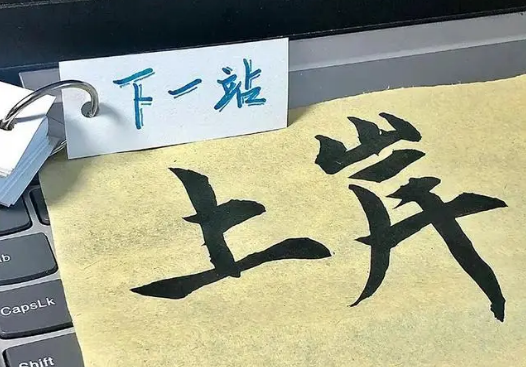 下一站
上岸
CapsLk
Shift